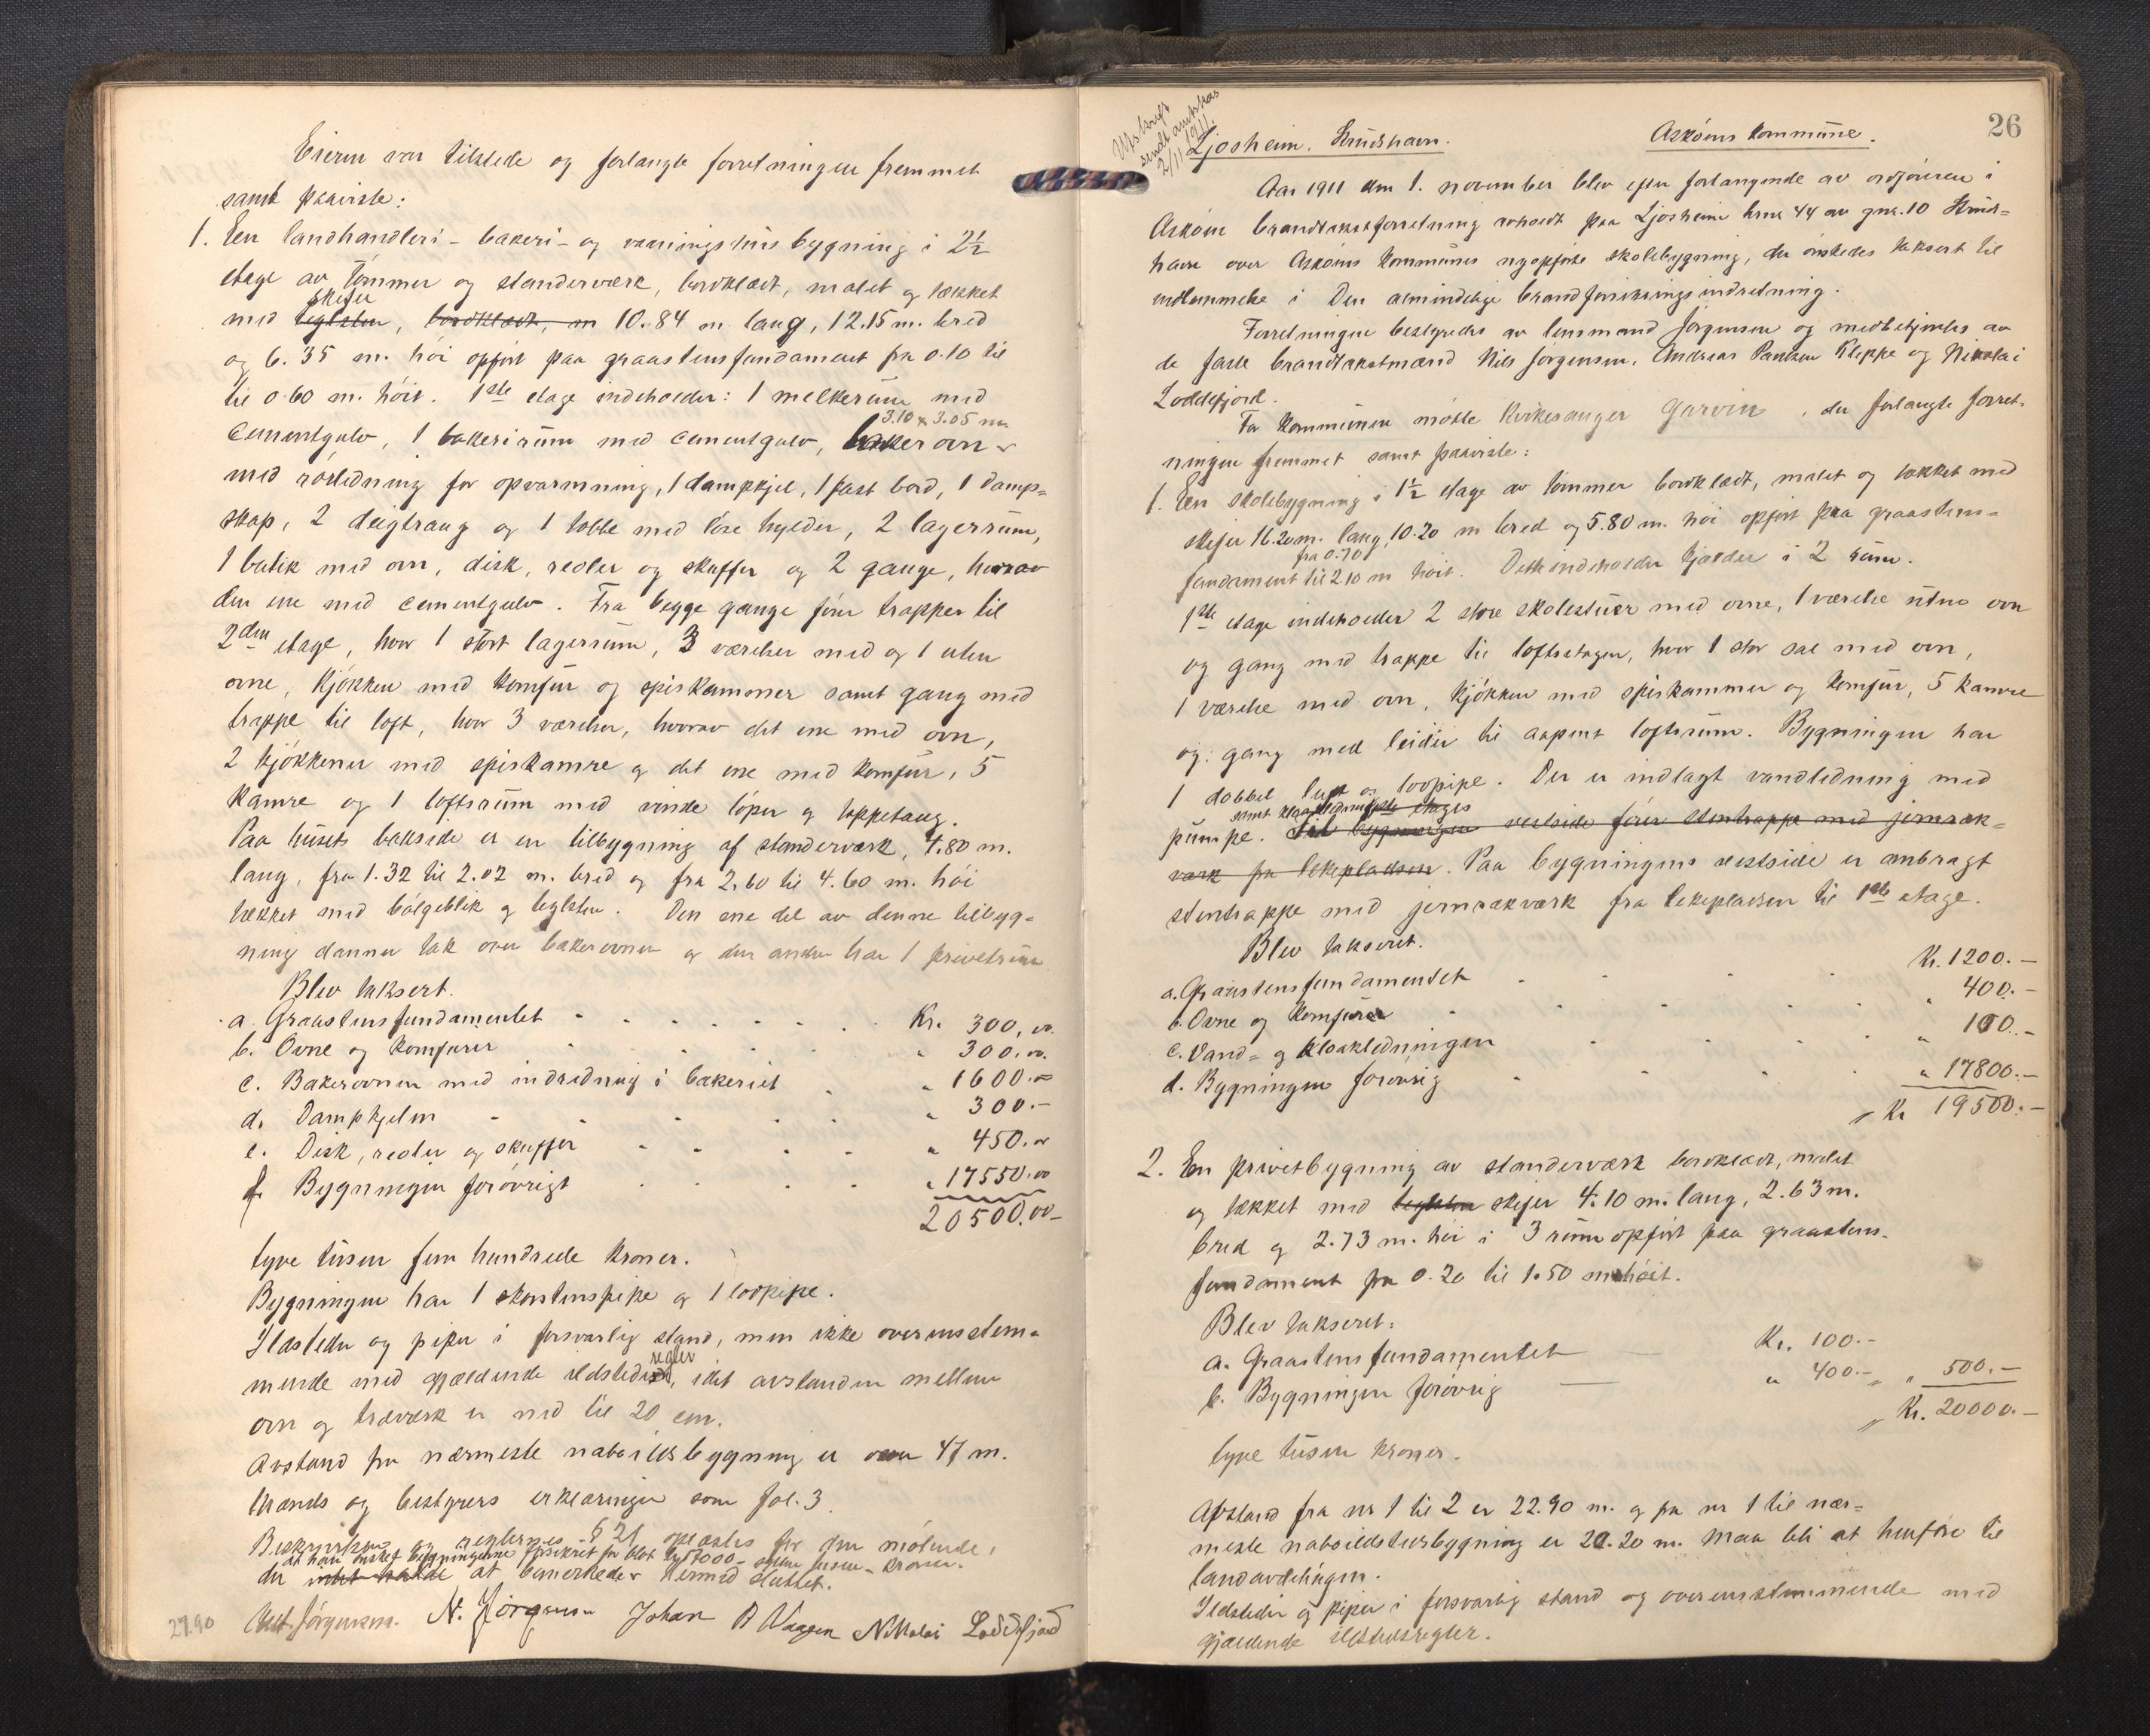 Eieren var tilstede og forlangte forretningen fremmet
samt paaviste:
1. Een landhandleri- bakeri- og vaaningshus bygning i 2½
etage av tømmer og standerværk, bordklædt, malet og tækket
skifer
med teglsten, bordklædt, m 10.84 m lang, 12.15 m. bred
og 6.35 m. høi opført paa graastensfundament fra 0.10 til
til 0.60 m. høit. 1ste etage indeholder: 1 melkerum med
3.10 x 3.05 m
cementgulv, 1 bakerirum med cementgulv, bakerovn
med rørledning for opvarmning, 1 dampkjel, 1 fast bord, 1 damp-
skap, 2 deigtraug og 1 tobbe med løse hylder, 2 lagerrum,
1 butik med ovn, disk, reoler og skuffer og 2 gange, hvorav
den ene med cementgulv. Fra begge gange fører trapper til
2den etage, hvor 1 stort lagerrum, 3 værelser med og 1 uten
ovne, kjøkken med komfur og spiskammer samt gang med
trappe til loft, hvor 3 værelser, hvorav det ene med ovn,
2 kjøkkener med spiskamre og det ene med komfur, 5
kamre og 1 loftsrum med vinde løper og toppetaug.
Paa husets bakside er en tilbygning af standerværk, 7.80 m.
lang, fra 1.32 til 2.02 m. bred og fra 2.60 til 4.60 m. høi
tækket med bølgeblik og teglsten. Den ene del av denne tilbyg-
ning danner tak over bakerovnen og den anden har 1 privetrum
Blev taksert.
a. Graastensfundamentet Kr. 300.00
b. Ovne og komfurer " 300.00
c. Bakerovnen med indredning i bakeriet " 1600.00
d. Dampkjelen " 300.-
e. Disk, reoler og skuffer " 450.00
f. Bygningen forøvrigt " 17550.00
20500.00-
tyve tusen fem hundrede kroner.
Bygningen har 1 skorstenspipe og 1 lodpipe.
Ildsteder og piper i forsvarlig stand, men ikke overensstem-
regler
mende med gjældende ildsteds, idet avstanden mellem
ovn og træverk er ned til 20 cm.
Avstand fra nærmeste naboildsbygning er over 47 m.
Mænds og bestyrers erklæringer som fol. 3.
Beskrivelsen og reglernes § 21 oplæstes for den møtende,
at han ønsket bygningerne forsikret for blot kr 17000 - sytten tusen - kroner.
der intet hadde at bemerke. Hermed sluttet.
27.90 Ant. Jørgensen. N. Jørgensen Johan A Vaagen Nikolai Loddefjord
26
Utskrift
sendt amtskas
2/11 1911.
Ljosheim, Strudshavn. Askøens kommune.
Aar 1911 den 1. november blev efter forlangende av ordføreren i
Askøen brandtakstforretning avholdt paa Ljosheim brnr 44 av gnr. 10 Struds-
havn over Askøens kommunes nyopførte skolebygning, der ønskedes taksert til
indlemmelse i Den almindelige brandforsikringsindretning.
Forretningen bestyredes av lensmand Jørgensen og medbetjentes av
de faste brandtakstmænd Nils Jørgensen, Andreas Paulsen Kleppe og Nikolai
Loddefjord.
For kommunen møtte kirkesanger Garvin, der forlangte forret-
ningen fremmet samt paaviste:
1. Een skolebygning i 1½ etage av tømmer bordklædt, malet og tækket med
skifer 16.20 m. lang, 10.20 m bred og 5.80 m. høi opført paa graastens-
fra 0.70
fundament til 2.10 m høit. Dette indeholder kjælder i 2 rum.
1ste etage indeholder 2 store skolestuer med ovne, 1 værelse uten ovn
og gang med trappe til loftsetagen, hvor 1 stor sal med ovn,
1 værelse med ovn, kjøkken med spiskammer og komfur, 5 kamre
og gang med leider til aapent loftsrum. Bygningen har
1 dobbel luft og lodpipe. Der er indlagt vandledning med
samt kloakledning etages
pumpe. Til bygningens vestside fører stentrappe med jernræk-
værk fra lekepladsen. Paa bygningens vestside er anbragt
stentrappe med jernrækværk fra lekepladsen til 1ste etage.
Blev takseret.
a. Graastensfundamentet Kr. 1200.-
b. Ovne og komfurer " 400.-
c. Vand- og kloakledningen " 100.-
d. Bygningen forøvrig " 17800.-
Kr 19500.-
2. En privetbygning av standerværk bordklædt, malet
og tækket med teglsten skifer 4.10 m. lang, 2.63 m.
bred og 2.73 m. høi i 3 rum opført paa graastens-
fundament fra 0.20 til 1.50 m høit.
Blev takseret:
a. Graastensfundamentet Kr. 100.-
b. Bygningen forøvrig " 400.- " 500.-
Kr. 20000.-
tyve tusen kroner.
Afstand fra nr 1 til 2 er 22.90 m. og fra nr 1 til nær-
meste naboildstedsbygning er 20.20 m. Maa bli at henføre til
landavdelingen.
Ildsteder og piper i forsvarlig stand og overensstemmende med
gjældende ildstedsregler.